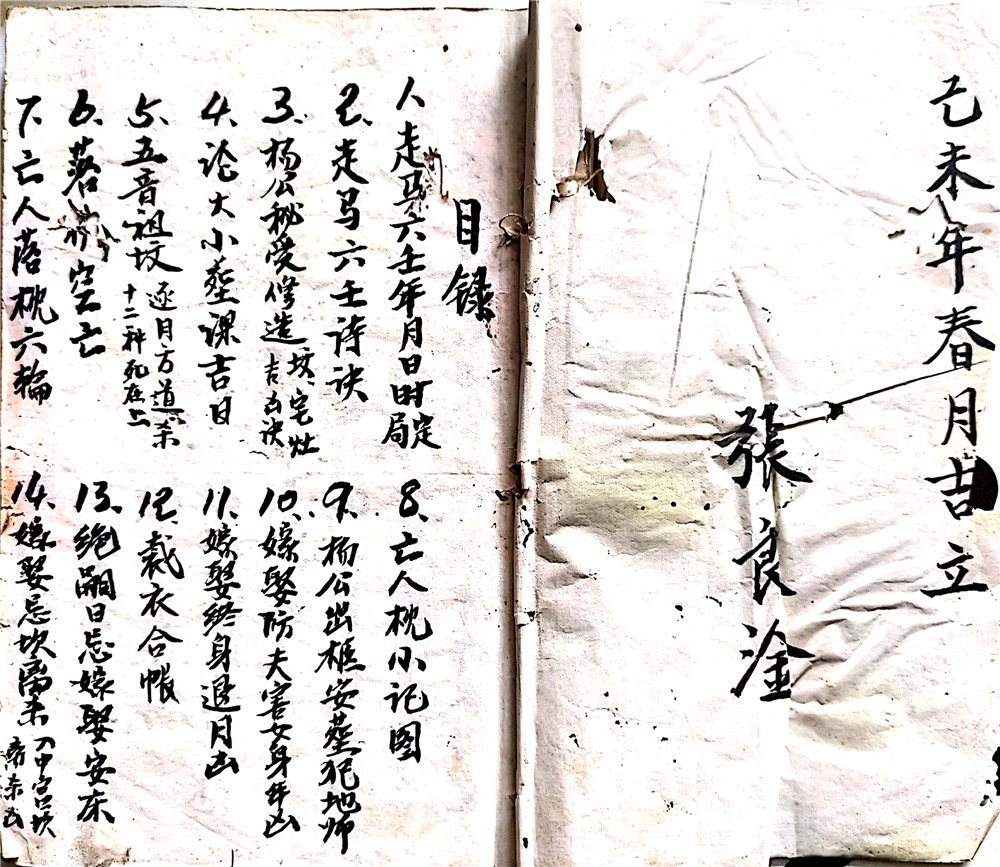 己未年春月吉立
張良淦
目録
1.走马六壬年月日时定局
2.走马六壬诗诀
3.杨公秘受修造坟、宅灶吉凶诀
4.论大小塟课吉日
5.五音祖坟逐月方道杀十二种死在上
6.落 空亡
7.亡人落枕六輪
8.亡人枕小记图
9.杨公出樵安塟犯地师
10.嫁娶防夫害女身年凶
11.嫁娶终身退月凶
12.裁衣合帳
13.绝嗣日忌嫁娶安床
14.嫁娶忌坎离未 中宫坎 凶